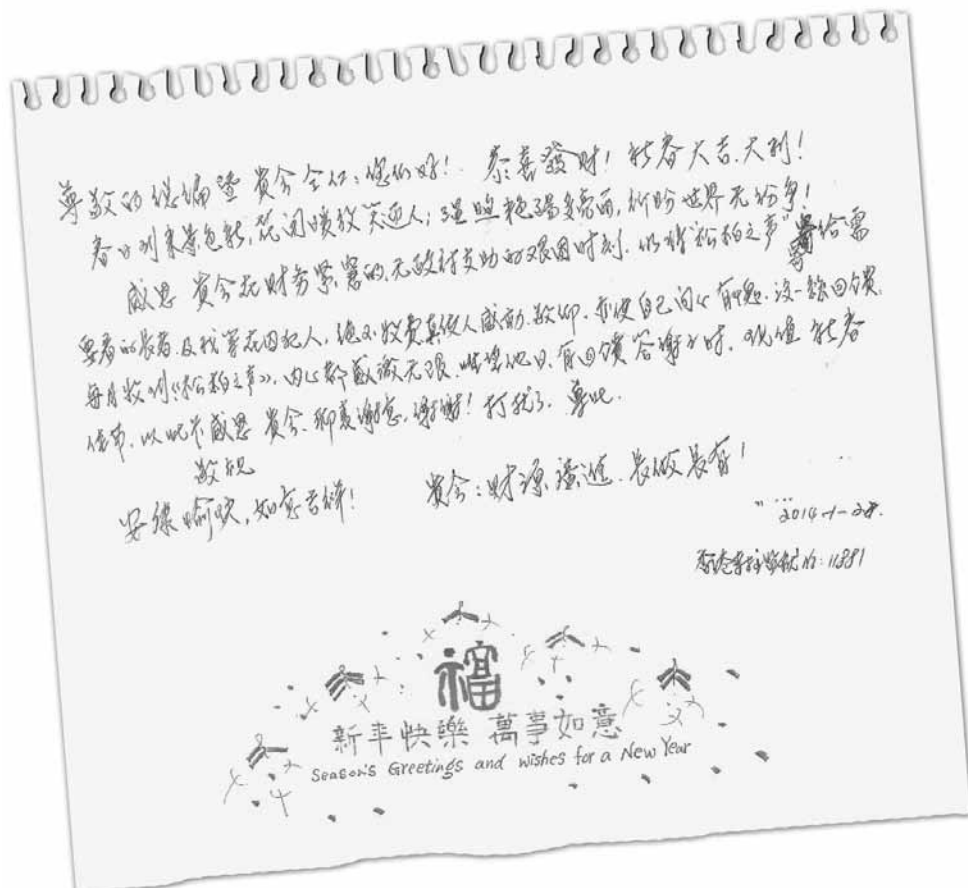 尊敬的总编暨 贵会全仁：您们好！ 恭喜發财！新春大吉、大利！
春日到来景色新，花闹喷放笑迎人；祈盼世界无纷争！
感恩 贵会在财务紧窘的、无政府支助的艰困时刻，仍将“松柏之声”寄给需
要看的长者、及我等在囚犯人，绝不收费真使人感动、敬仰。亦使自己问心有愧、没一丝回馈。
每月收到《松柏之声》，内心都感激无限，盼望他日，有回馈答谢之时。现值 新春
佳节，以此片感恩 贵会、聊表谢意，谢谢！打扰了。专此。
敬祝
安康愉快，如意吉祥！ 贵会：财源广进、长做长有！
2014-1-28.
11881
福
新年快樂 萬事如意
Season's Greetings and wishes for a New Year